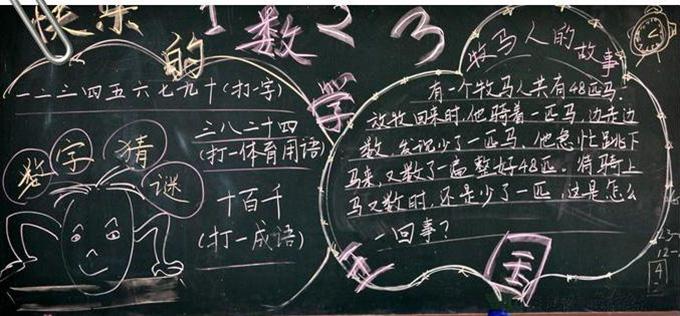 快乐的1数23
学
王国
一二三四五六七九十(打一字)
三八二十四
(打一体育用语)
数字猜谜
十百千
(打一成语)
牧马人的故事
有一个牧马人共有48匹马.
放牧回来时,他骑着一匹马,边走边
数,发现少了一匹马,他急忙跳下
马来,又数了一遍整好48匹.待骑上
马又数时,还是少了一匹,这是怎么
一回事?